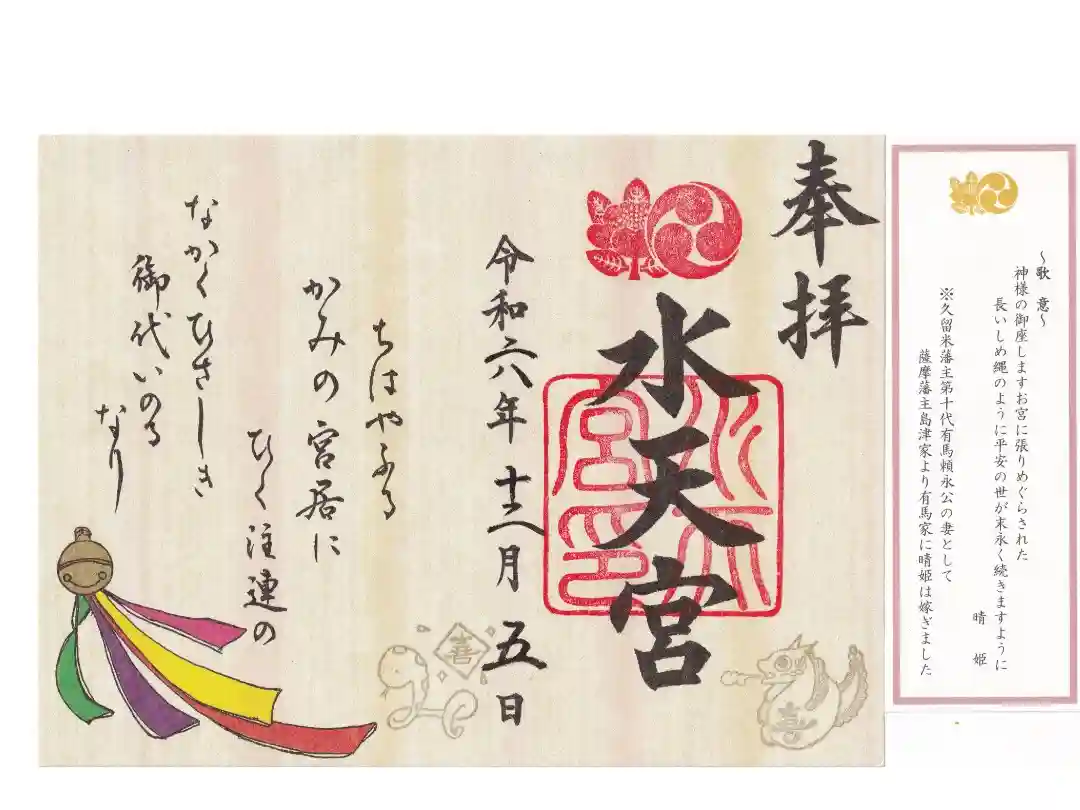 奉拝
水天宮
水天宮印
令和六年十二月五日
ちはやふる
かみの宮居に
ひく注連の
なかくひさしき
御代いのる
なり
喜
喜
～歌　意～
神様の御座しますお宮に張りめぐらされた
長いしめ縄のように平安の世が末永く続きますように
晴　姫
※久留米藩主第十代有馬頼永公の妻として
薩摩藩主島津家より有馬家に晴姫は嫁ぎました